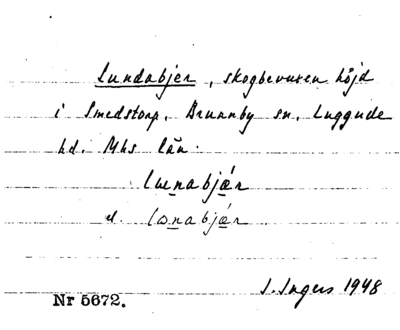 Lundabjer, skogbevuxen höjd
i Smedstorp, Brunnby sn, Luggude
hd. Mhs län.
lωnabjær
el. lωnabjær
I. Ingers 1948
Nr 5672.